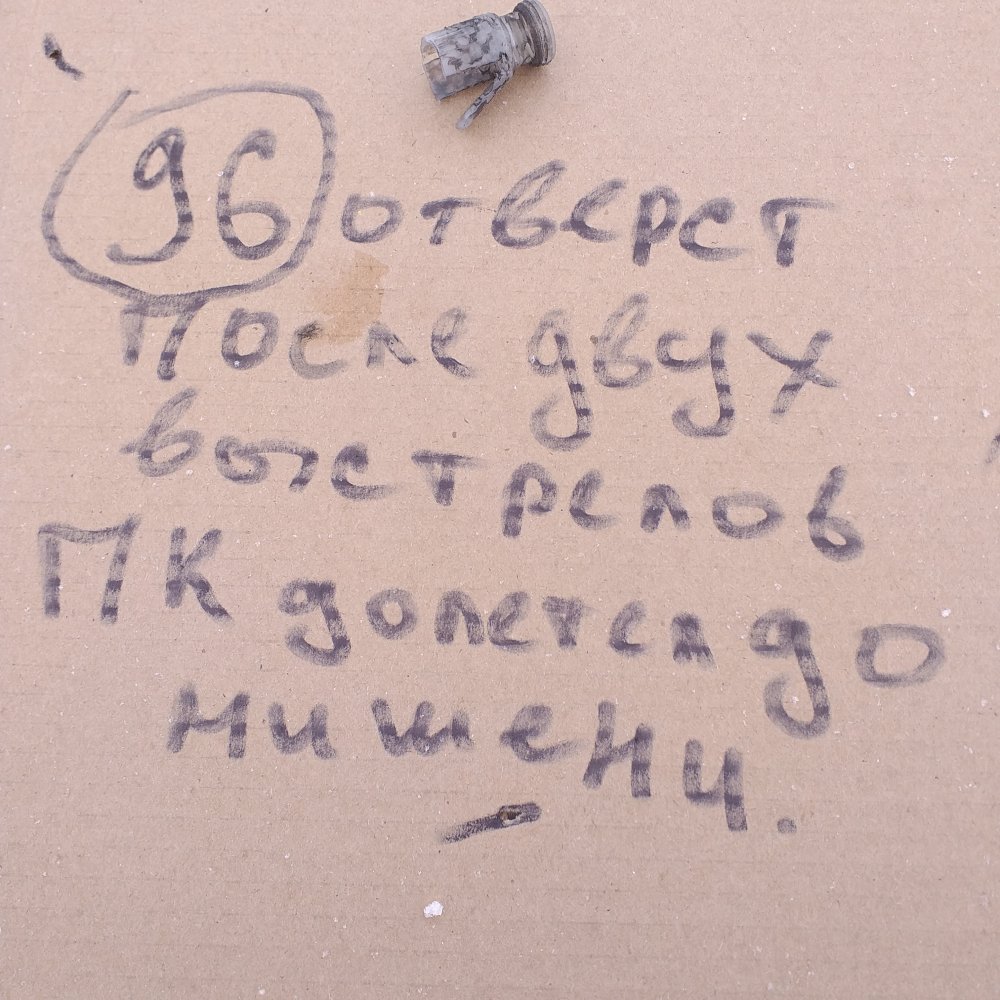 96 отверст
После двух
выстрелов
ПК долетел до
мишени.